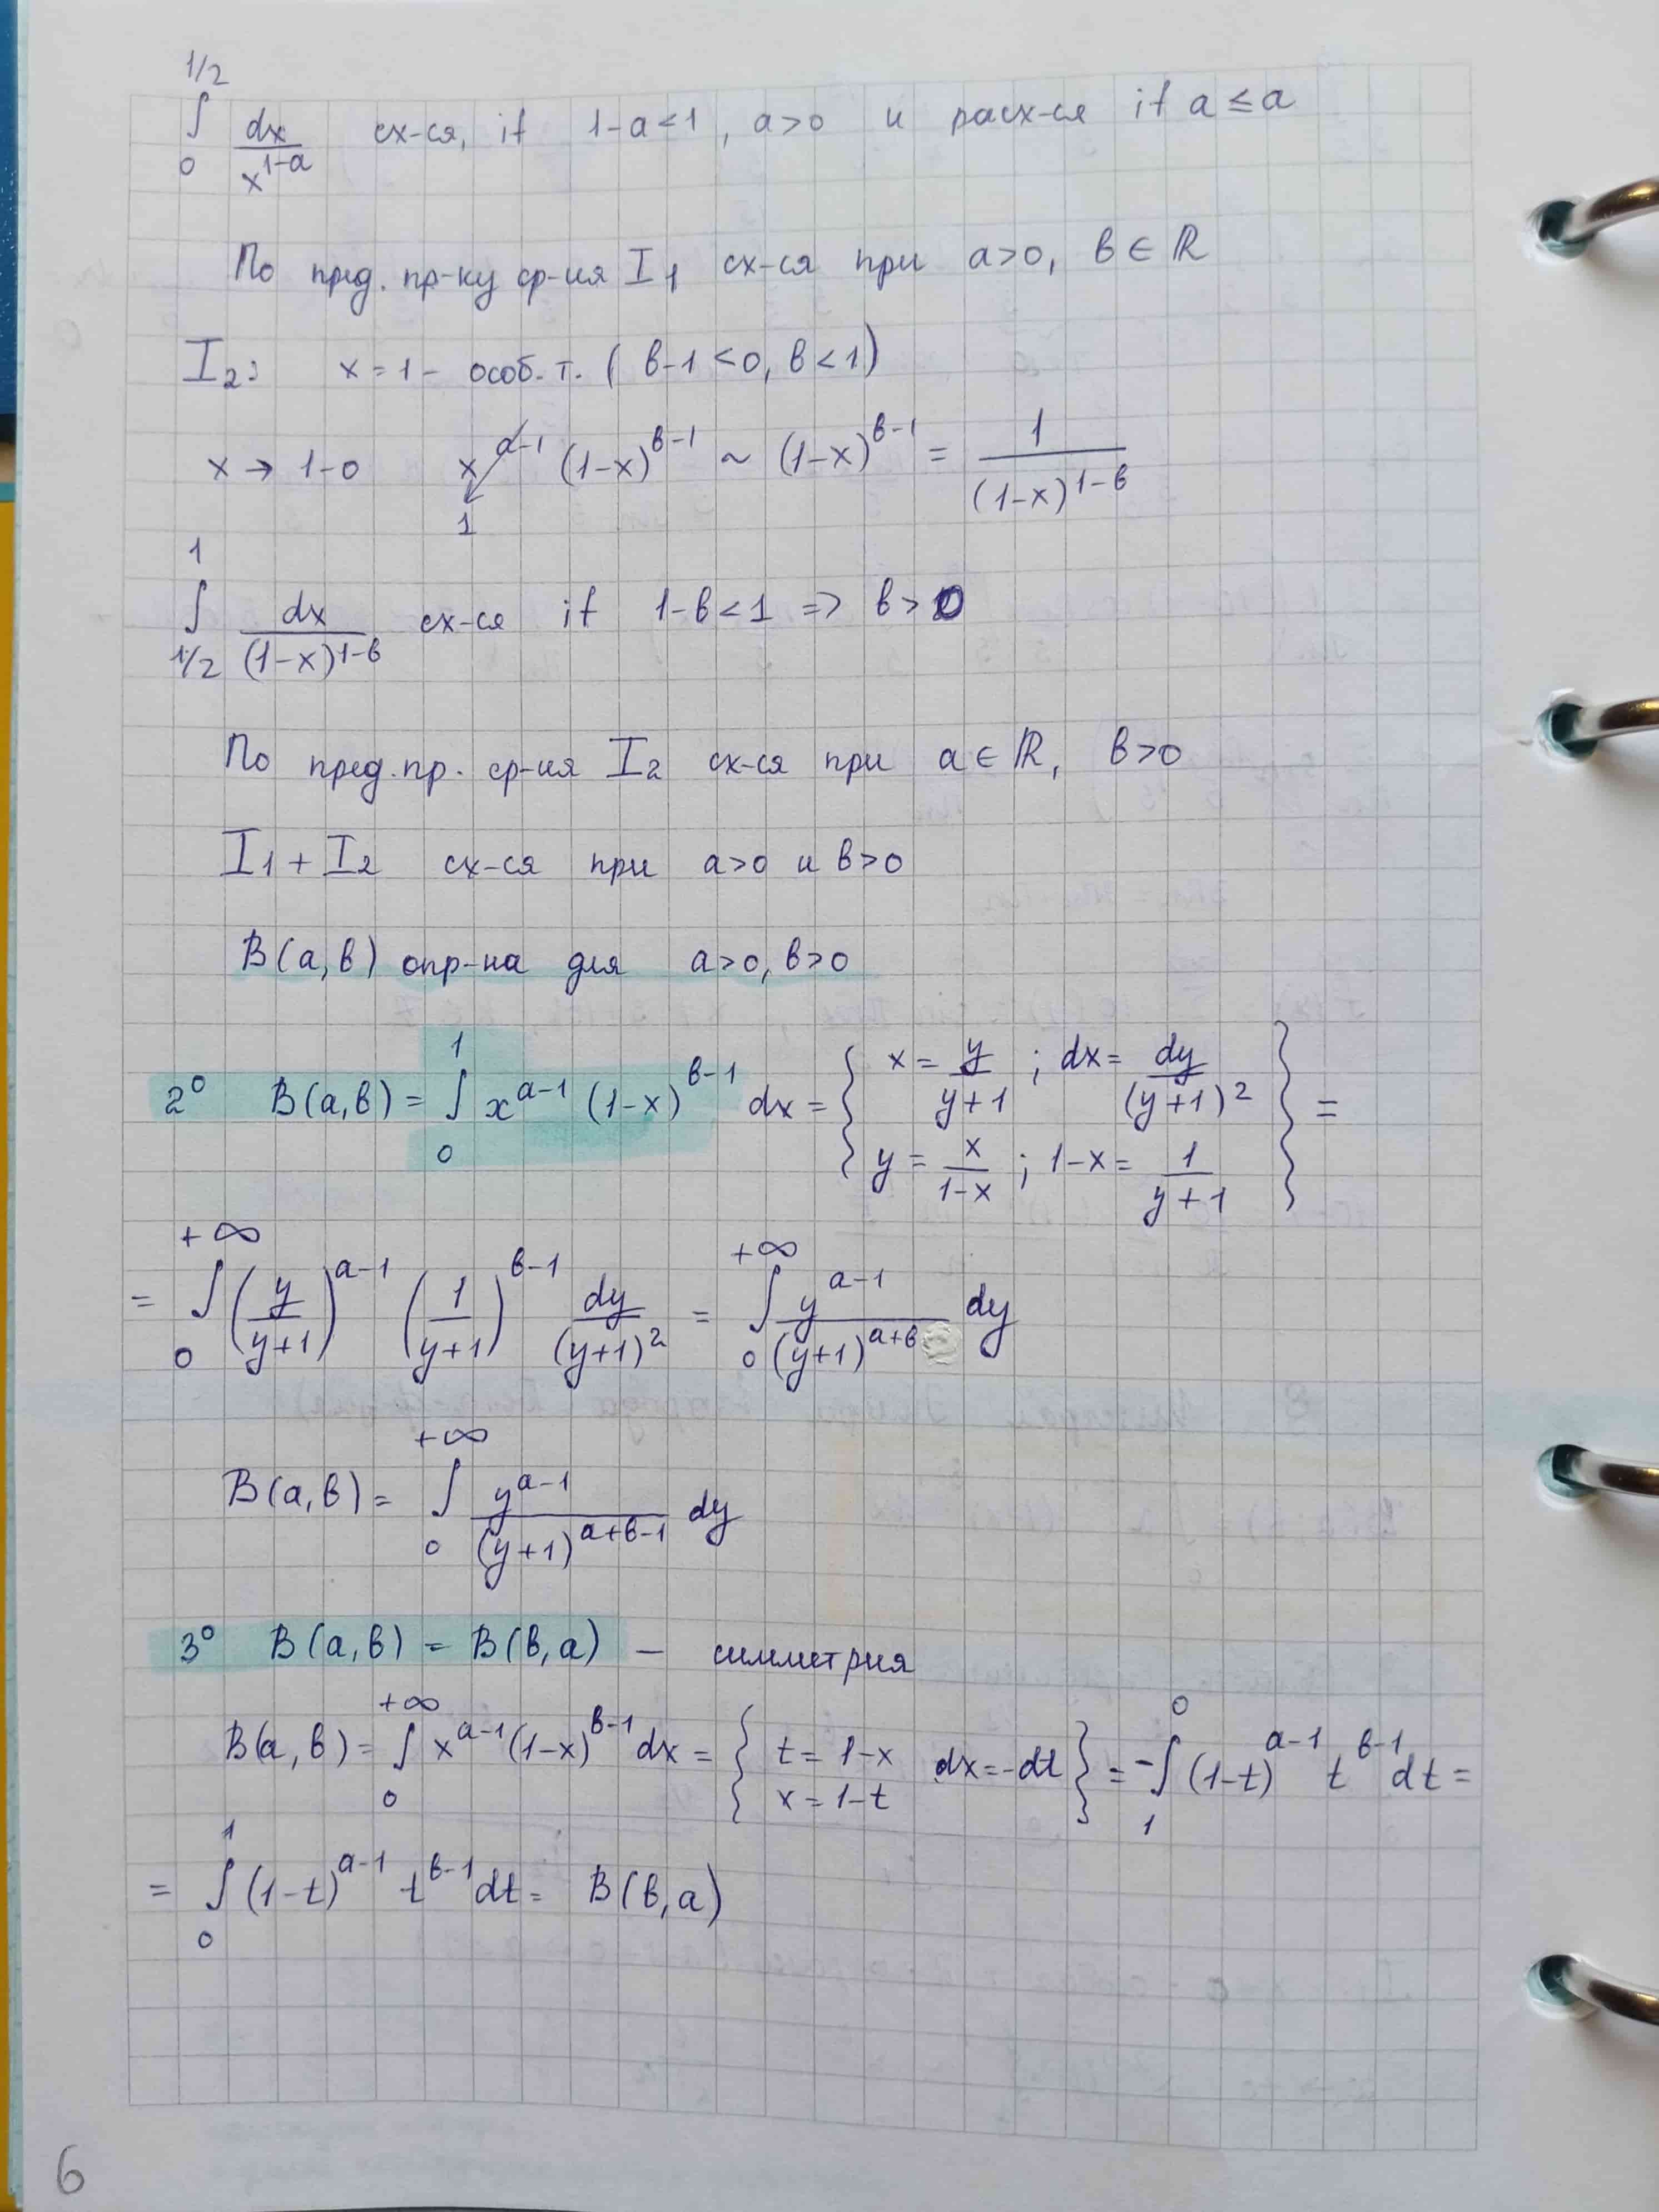 ∫_0^{1/2} dx/x^{1-a} сх-ся, if 1-a<1, a>0 и расх-ся if a≤a
По пред. пр-ку ср-ия I₁ сх-ся при a>0, в∈ℝ
I₂: x=1 - особ. т. ( в-1<0, в<1)
x→1-0 x^{a-1} (1-x)^{в-1} ~ (1-x)^{в-1} = 1/(1-x)^{1-в}
1
∫_{1/2}^1 dx/(1-x)^{1-в} сх-ся if 1-в<1 => в>0
По пред. пр. ср-ия I₂ сх-ся при a∈ℝ, в>0
I₁+I₂ сх-ся при a>0 и в>0
B(a,в) опр-на для a>0, в>0
2⁰ B(a,в) = ∫_0^1 x^{a-1} (1-x)^{в-1} dx = { x = y/(y+1) ; dx = dy/(y+1)² ; y = x/(1-x) ; 1-x = 1/(y+1) } =
= ∫_0^{+∞} (y/(y+1))^{a-1} (1/(y+1))^{в-1} dy/(y+1)² = ∫_0^{+∞} y^{a-1}/(y+1)^{a+в} dy
B(a,в) = ∫_0^{+∞} y^{a-1}/(y+1)^{a+в-1} dy
3⁰ B(a,в) = B(в,a) — симметрия
B(a,в) = ∫_0^{+∞} x^{a-1} (1-x)^{в-1} dx = { t = 1-x dx=-dt x = 1-t } = -∫_1^0 (1-t)^{a-1} t^{в-1} dt =
= ∫_0^1 (1-t)^{a-1} t^{в-1} dt = B(в,a)
6